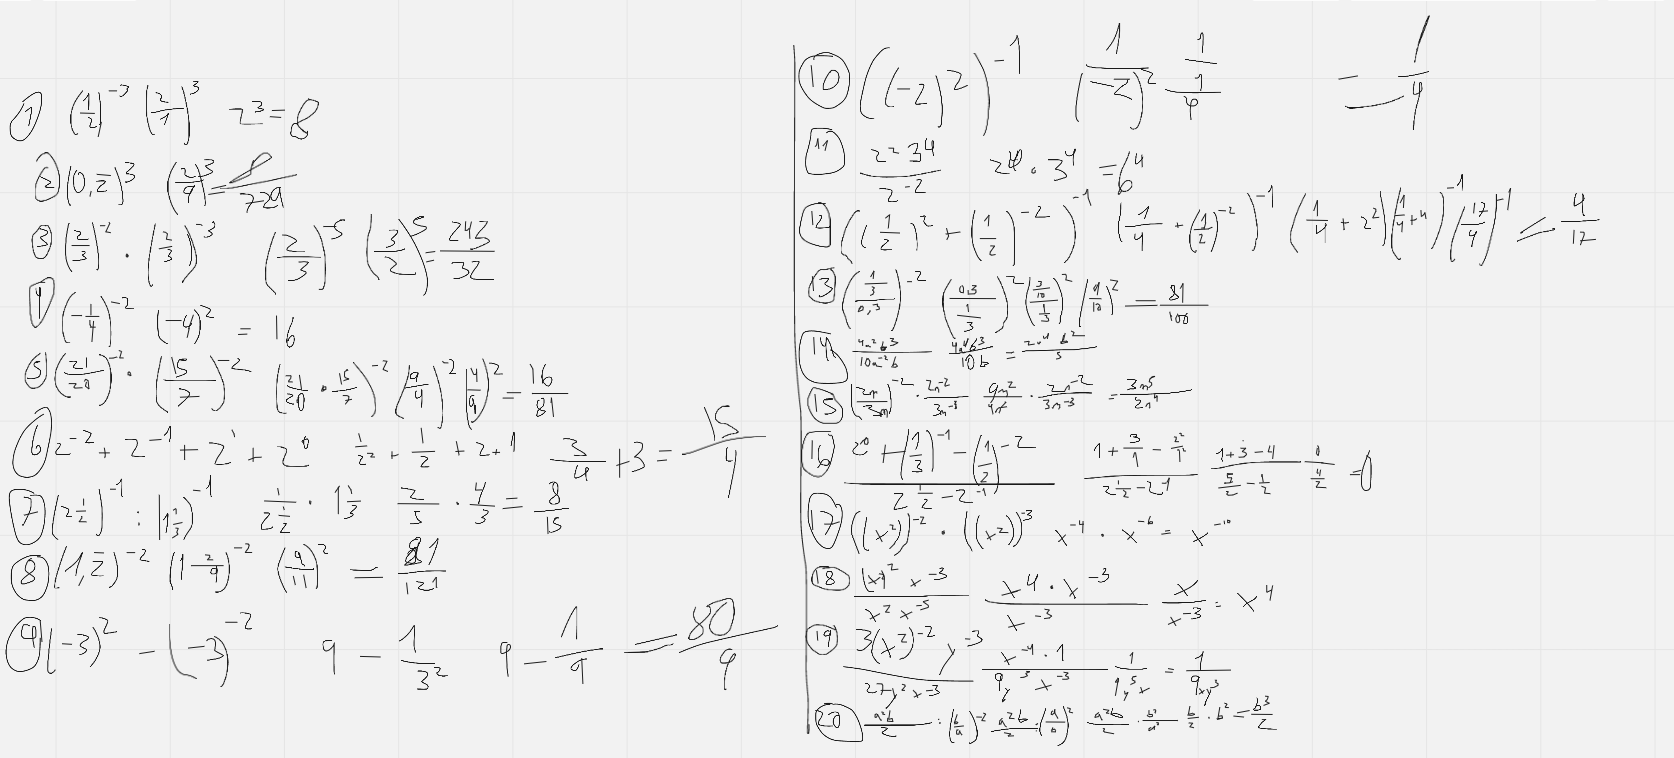 ① (1/2)^-3 (2/1)^3 2^3 = 8
② (0,2̅)^3 (2/9)^3 = 8/729
③ (2/3)^-2 · (2/3)^-3 (2/3)^-5 (3/2)^5 = 243/32
④ (-1/4)^-2 (-4)^2 = 16
⑤ (21/20)^-2 · (15/7)^-2 (21/20 · 15/7)^-2 (9/4)^-2 (4/9)^2 = 16/81
⑥ 2^-2 + 2^-1 + 2^1 + 2^0 1/2^2 + 1/2 + 2+1 3/4 + 3 = 15/4
⑦ (2 1/2)^-1 : (1 1/3)^-1 1/(2 1/2) · 1 1/3 2/5 · 4/3 = 8/15
⑧ (1,2̅)^-2 (1 2/9)^-2 (9/11)^2 = 81/121
⑨ (-3)^2 - (-3)^-2 9 - 1/3^2 9 - 1/9 = 80/9
⑩ ((-2)^2)^-1 1/(-2)^2 = 1/4
⑪ (2^2 3^4)/2^-2 2^4 · 3^4 = 6^4
⑫ ((1/2)^2 + (1/2)^-2)^-1 (1/4 + (1/2)^-2)^-1 (1/4 + 2^2) (1/4 + 4)^-1 (17/4)^-1 = 4/17
⑬ ((1/3)/0,3)^-2 (0,3/(1/3))^2 ((3/10)/(1/3))^2 (9/10)^2 = 81/100
⑭ (4a^2b^3)/(10a^-2b) (4a^4b^3)/(10b) = (2a^4b^2)/5
⑮ · (2n^-2)/(3m^-3) · (2n^-2)/(3m^-3) = (3m^5)/(2n^4)
⑯ (2^0 + (1/3)^-1 - (1/2)^-2)/(2 1/2 - 2^-1) (1 + 3/1 - 2^2/1^2)/(2 1/2 - 2^-1) (1+3-4)/(5/2 - 1/2) 0/(4/2) = 0
⑰ ((x^2))^-2 · ((x^2))^-3 x^-4 · x^-6 = x^-10
⑱ x^-3/(x^2 x^-5) (x^4 · x^-3)/x^-3 x/x^-3 = x^4
⑲ (3(x^2)^-2 y^-3)/(27y^2x^-3) (x^-4 · 1)/(9y^5 x^-3) 1/(9y^5x) = 1/(9xy^5)
⑳ (a^2b)/2 : (b/a)^-2 (a^2b)/2 : (a/b)^2 (a^2b)/2 · b^2/a^2 b/2 · b^2 = b^3/2